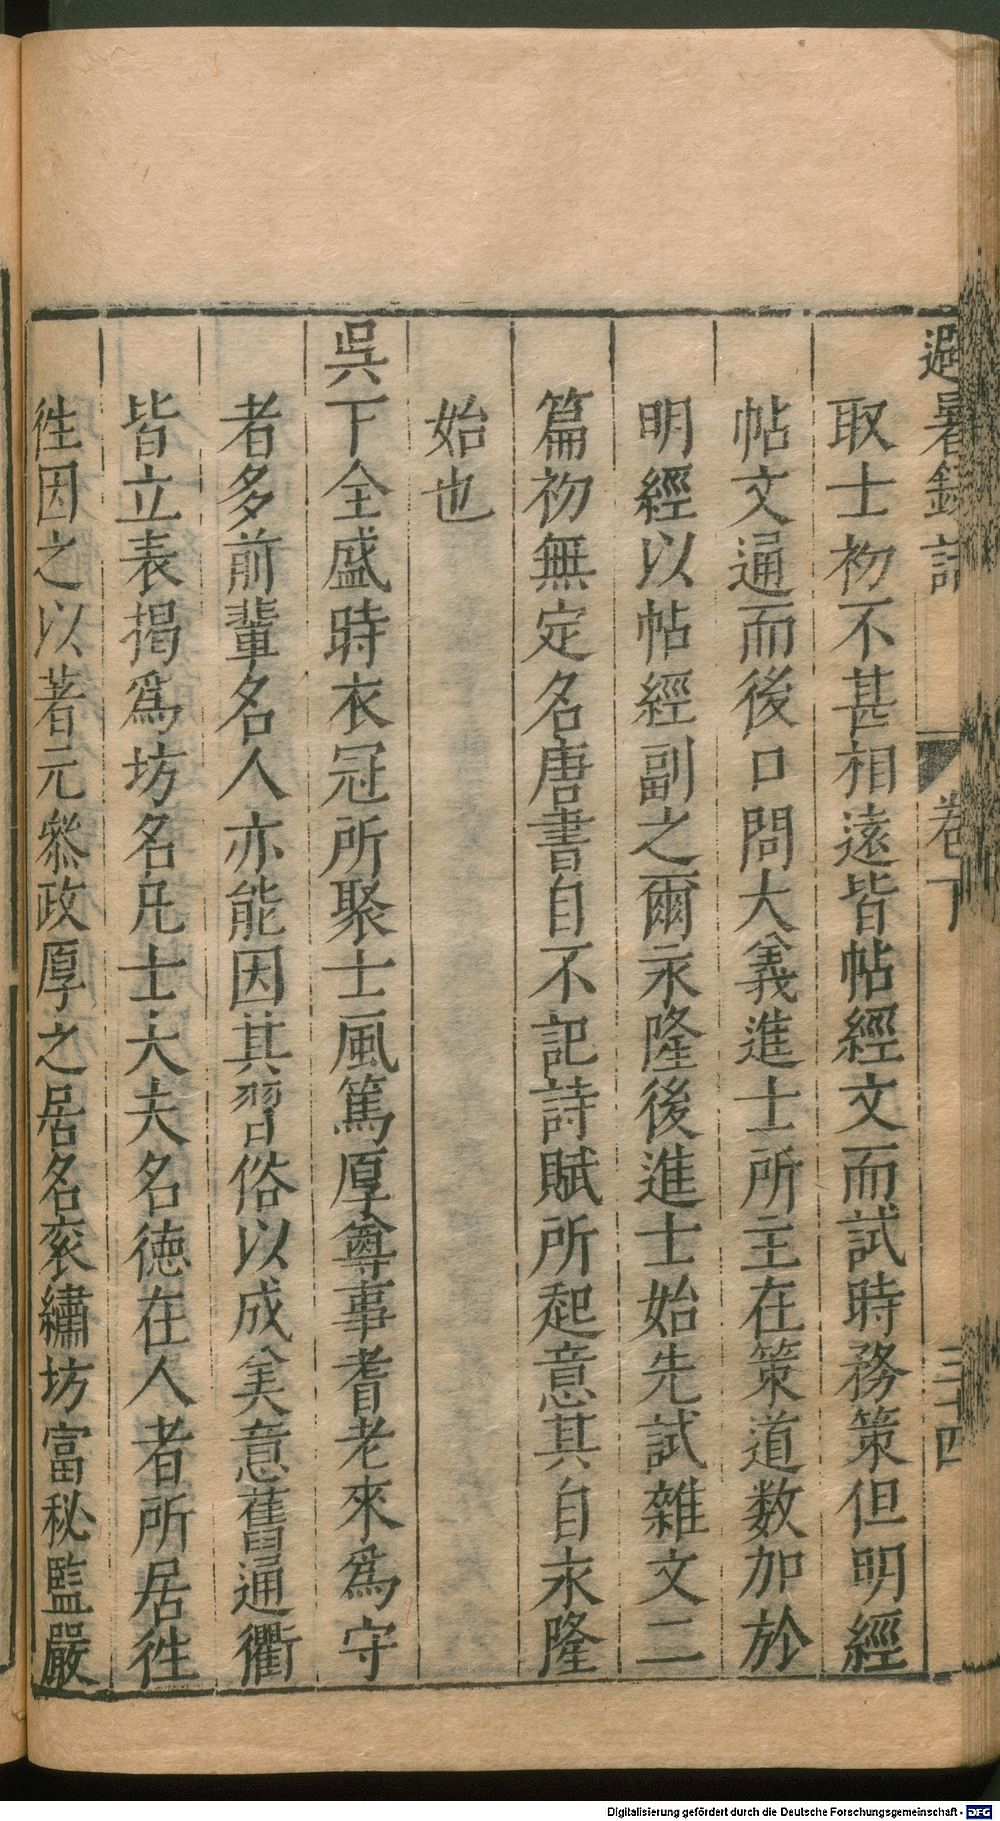 避暑錄話 卷下 三十四
取士初不甚相遠皆帖經文而試時務策但明經
帖文通而後口問大義進士所主在策道数加於
明經以帖經副之爾永隆後進士始先試雜文二
篇初無定名唐書自不記詩賦所起意其自永隆
始也
吳下全盛時衣冠所聚士風篤厚尊事耆老來爲守
者多前輩名人亦能因其習俗以成美意舊通衢
皆立表揭爲坊名凡士大夫名徳在人者所居徃
徃因之以著元叅政厚之居名衮繡坊富秘監嚴
Digitalisierung gefördert durch die Deutsche Forschungsgemeinschaft - DFG